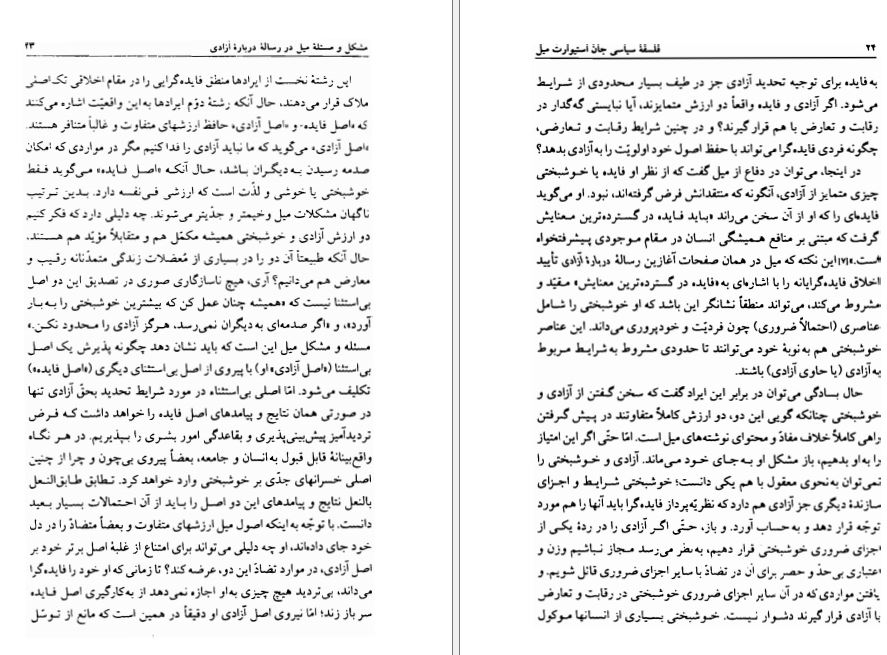 مشکل و مسئلهٔ میل در رسالهٔ دربارهٔ آزادی ۲۳
این رشتهٔ نخست از ایرادها منطق فایده‌گرایی را در مقام اخلاقی تک‌اصلی
ملاک قرار می‌دهند، حال آنکه رشتهٔ دوّم ایرادها به این واقعیّت اشاره می‌کنند
که «اصل فایده» و «اصل آزادی» حافظ ارزشهای متفاوت و غالباً متنافر هستند.
«اصل آزادی» می‌گوید که ما نباید آزادی را فدا کنیم مگر در مواردی که امکان
صدمه رسیدن به دیگران باشد، حال آنکه «اصل فایده» می‌گوید فقط
خوشبختی یا خوشی و لذّت است که ارزشی فی‌نفسه دارد. بدین ترتیب
ناگهان مشکلات میل وخیمتر و جدّیتر می‌شوند. چه دلیلی دارد که فکر کنیم
دو ارزش آزادی و خوشبختی همیشه مکمّل هم و متقابلاً مؤیّد هم هستند،
حال آنکه طبیعتاً آن دو را در بسیاری از مُعضلات زندگی متمدّنانه رقیب و
معارض هم می‌دانیم؟ آری، هیچ ناسازگاری صوری در تصدیق این دو اصل
بی‌استثنا نیست که «همیشه چنان عمل کن که بیشترین خوشبختی را به بار
آورد»، و «اگر صدمه‌ای به دیگران نمی‌رسد، هرگز آزادی را محدود نکن.»
مسئله و مشکل میل این است که باید نشان دهد چگونه پذیرش یک اصل
بی‌استثنا («اصل آزادی» او) با پیروی از اصل بی‌استثنای دیگری («اصل فایده»)
تکلیف می‌شود. امّا اصلی بی‌استثناء در مورد شرایط تحدید بحقّ آزادی تنها
در صورتی همان نتایج و پیامدهای اصل فایده را خواهد داشت که فرض
تردیدآمیز پیش‌بینی‌پذیری و بقاعدگی امور بشری را بپذیریم. در هر نگاه
واقع‌بینانهٔ قابل قبول به انسان و جامعه، بعضاً پیروی بی‌چون و چرا از چنین
اصلی خسرانهای جدّی بر خوشبختی وارد خواهد کرد. تطابق طابق‌النعل
بالنعل نتایج و پیامدهای این دو اصل را باید از آن احتمالات بسیار بعید
دانست. با توجّه به اینکه اصول میل ارزشهای متفاوت و بعضاً متضادّ را در دل
خود جای داده‌اند، او چه دلیلی می‌تواند برای امتناع از غلبهٔ اصل برتر خود بر
اصل آزادی، در موارد تضادّ این دو، عرضه کند؟ تا زمانی که او خود را فایده‌گرا
می‌داند، بی‌تردید هیچ چیزی به او اجازه نمی‌دهد از به‌کارگیری اصل فایده
سر باز زند؛ امّا نیروی اصل آزادی او دقیقاً در همین است که مانع از توسّل
۲۴ فلسفهٔ سیاسی جان استیوارت میل
به فایده برای توجیه تحدید آزادی جز در طیف بسیار محدودی از شرایط
می‌شود. اگر آزادی و فایده واقعاً دو ارزش متمایزند، آیا نبایستی گه‌گدار در
رقابت و تعارض با هم قرار گیرند؟ و در چنین شرایط رقابت و تعارضی،
چگونه فردی فایده‌گرا می‌تواند با حفظ اصول خود اولویّت را به آزادی بدهد؟
در اینجا، می‌توان در دفاع از میل گفت که از نظر او فایده یا خوشبختی
چیزی متمایز از آزادی، آنگونه که منتقدانش فرض گرفته‌اند، نبود. او می‌گوید
فایده‌ای را که او از آن سخن می‌راند «باید فایده در گسترده‌ترین معنایش
گرفت که مبتنی بر منافع همیشگی انسان در مقام موجودی پیشرفتخواه
است.»[۷] این نکته که میل در همان صفحات آغازین رسالهٔ دربارهٔ آزادی تأیید
اخلاق فایده‌گرایانه را با اشاره‌ای به «فایده در گسترده‌ترین معنایش» مقیّد و
مشروط می‌کند، می‌تواند منطقاً نشانگر این باشد که او خوشبختی را شامل
عناصری (احتمالاً ضروری) چون فردیّت و خودپروری می‌داند. این عناصر
خوشبختی هم به نوبهٔ خود می‌توانند تا حدودی مشروط به شرایط مربوط
به آزادی (یا حاوی آزادی) باشند.
حال بسادگی می‌توان در برابر این ایراد گفت که سخن گفتن از آزادی و
خوشبختی چنانکه گویی این دو، دو ارزش کاملاً متفاوتند در پیش گرفتن
راهی کاملاً خلاف مفادّ و محتوای نوشته‌های میل است. امّا حتّی اگر این امتیاز
را به او بدهیم، باز مشکل او به‌جای خود می‌ماند. آزادی و خوشبختی را
نمی‌توان به‌نحوی معقول با هم یکی دانست؛ خوشبختی شرایط و اجزای
سازندهٔ دیگری جز آزادی هم دارد که نظریّه‌پرداز فایده‌گرا باید آنها را هم مورد
توجّه قرار دهد و به حساب آورد. و باز، حتّی اگر آزادی را در ردهٔ یکی از
اجزای ضروری خوشبختی قرار دهیم، به‌نظر می‌رسد مجاز نباشیم وزن و
اعتباری بی‌حدّ و حصر برای آن در تضادّ با سایر اجزای ضروری قائل شویم. و
یافتن مواردی که در آن سایر اجزای ضروری خوشبختی در رقابت و تعارض
با آزادی قرار گیرند دشوار نیست. خوشبختی بسیاری از انسانها موکول